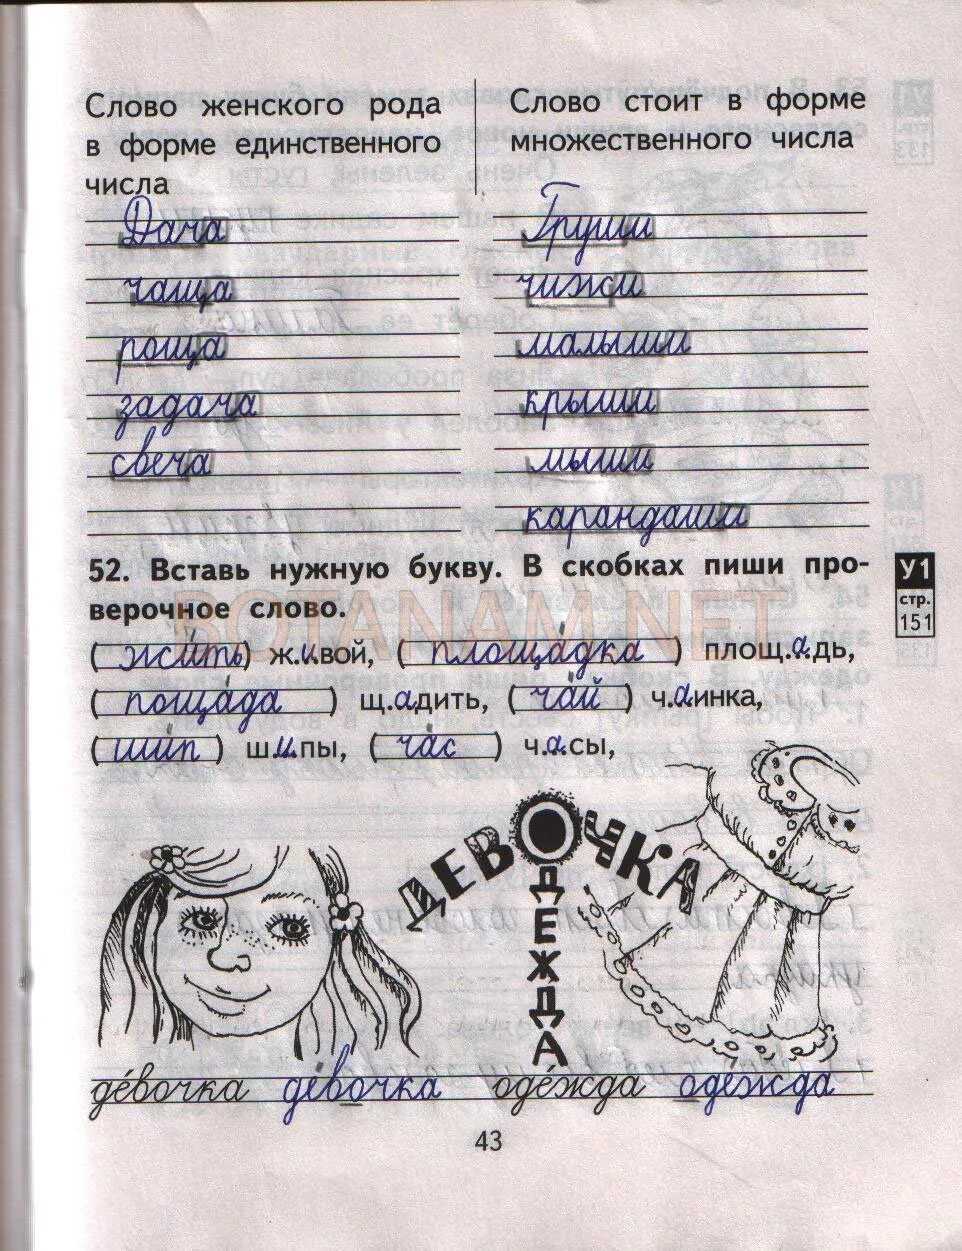 Слово женского рода
в форме единственного
числа
Дача
чаща
роща
задача
свеча
Слово стоит в форме
множественного числа
Груши
чижи
малыши
крыши
мыши
карандаши
52. Вставь нужную букву. В скобках пиши про-
верочное слово.
У1
стр.
151
BOTANAM.NET
(жи́ть) ж.и.вой, (площа́дка) площ.а.дь,
(поща́да) щ.а.дить, (ча́й) ч.а.инка,
(ши́п) ш.и.пы, (ча́с) ч.а.сы,
ДЕВОЧКА
ОДЕЖДА
де́вочка де́вочка оде́жда одежда
43